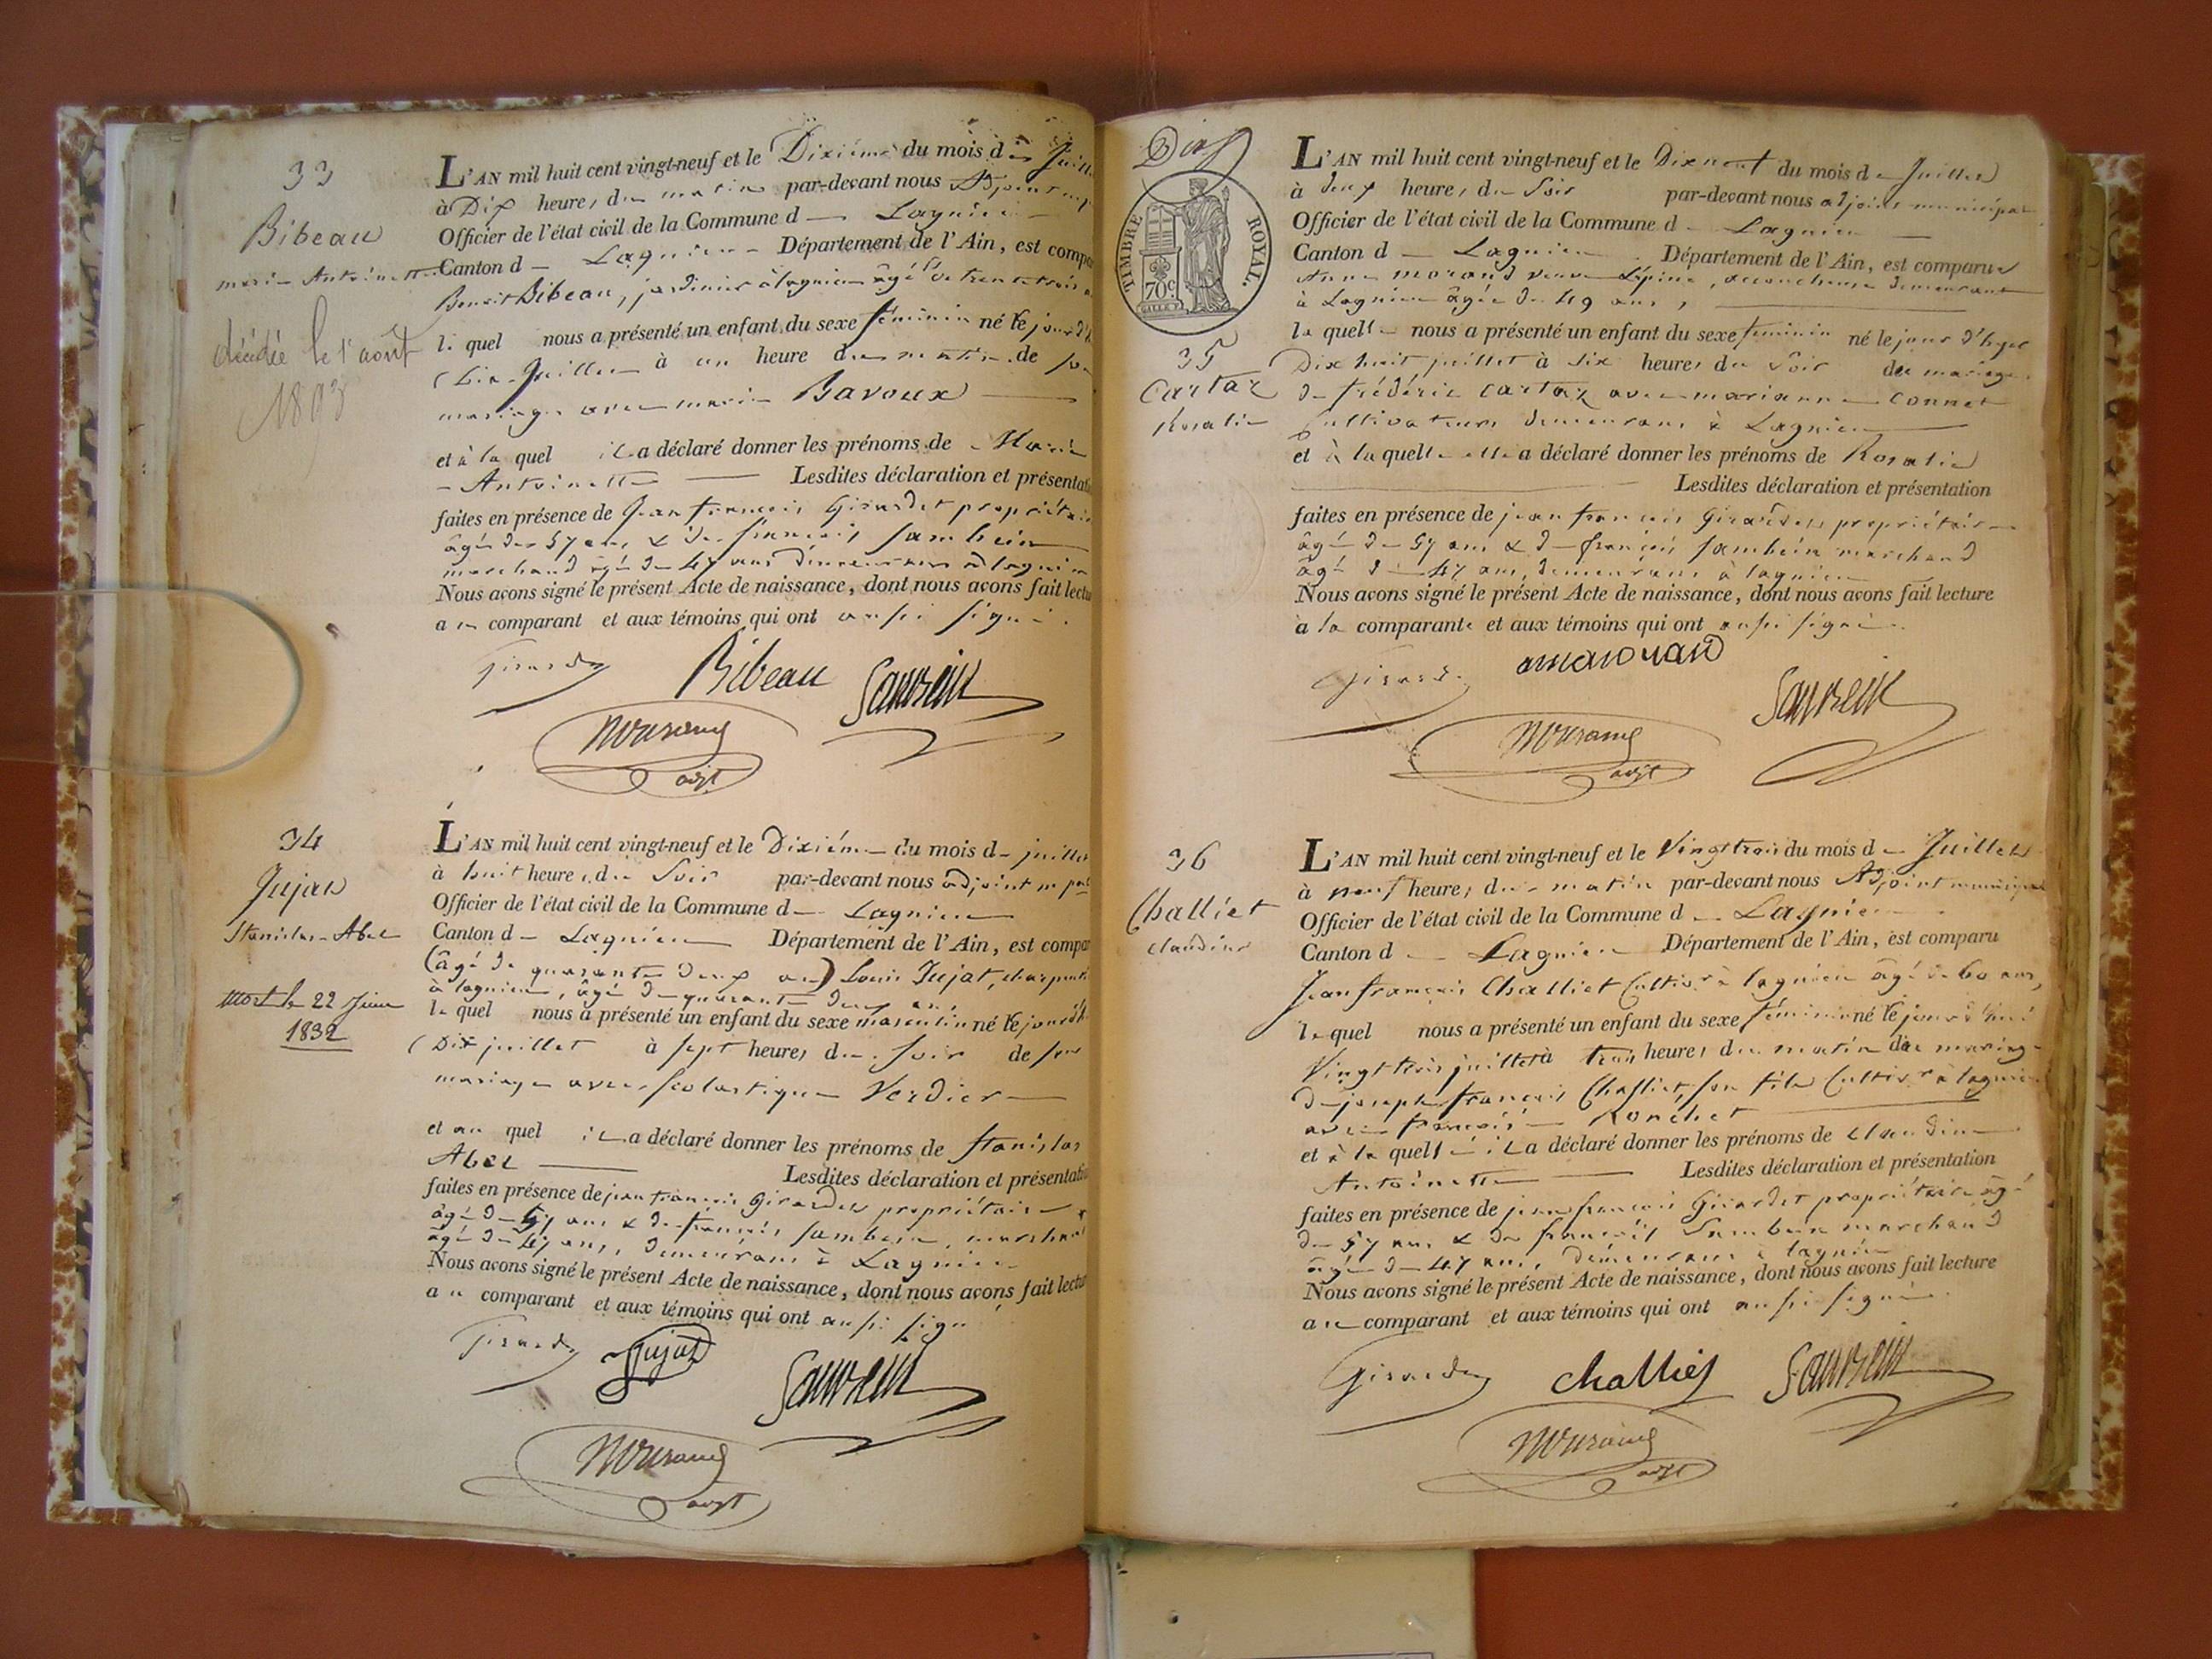 33
Bibeau
marie Antoinette
décédée le 1 août
L'AN mil huit cent vingt-neuf et le Dixième du mois de Juillet
à Dix heures du matin par-devant nous Adjoint
Officier de l'état civil de la Commune d Lagnieu
Canton d Lagnieu Département de l'Ain, est compa
Benoit Bibeau, jardinier à lagnieu âgé de trente trois
le quel nous a présenté un enfant du sexe féminin né le jour d'
(Dix Juillet à un heure du matin de son
mariage avec marie Bavoux
et à la quel il a déclaré donner les prénoms de Marie
Antoinette Lesdites déclaration et présentati
faites en présence de Jean françois Girardet propriétaire
âgé de 57 ans & de françois Sambein
marchand âgé de 47 ans demeurans à lagnieu
Nous avons signé le présent Acte de naissance, dont nous avons fait lectu
au comparant et aux témoins qui ont aussi signé.
Girardet Bibeau Sambein
adjt
34
Jujat
Stanislas Abel
mort le 22 Juin
1832
L'AN mil huit cent vingt-neuf et le Dixième du mois de juillet
à huit heures du Soir par-devant nous adjoint mpal
Officier de l'état civil de la Commune d Lagnieu
Canton d Lagnieu Département de l'Ain, est compar
(âgé de quarante deux ans) Louis Jujat, charpenti
à lagnieu, âgé de quarante deux ans
le quel nous a présenté un enfant du sexe masculin né le jour d'h
(Dix juillet à sept heures du soir de son
mariage avec Scolastique Verdier
et au quel il a déclaré donner les prénoms de Stanislas
Abel Lesdites déclaration et présentatio
faites en présence de jean françois Girardet propriétaire
âgé de 57 ans & de françois Sambein, marchand
âgé de 47 ans, demeurans à Lagnieu
Nous avons signé le présent Acte de naissance, dont nous avons fait lectur
au comparant et aux témoins qui ont aussi signé
Girardet Jujat Sambein
adjt
TIMBRE ROYAL.
70c
35
Cartaz
Rosalie
L'AN mil huit cent vingt-neuf et le Dix neuf du mois de Juillet
à deux heures du Soir par-devant nous adjoint municipal
Officier de l'état civil de la Commune d Lagnieu
Canton d Lagnieu Département de l'Ain, est comparue
Anne morand veuve Lépine, accoucheuse demeurant
à Lagnieu âgée de 49 ans,
la quelle nous a présenté un enfant du sexe feminin né le jour d'hyer
Dix huit juillet à six heures du soir du mariage
de frédéric Cartaz avec marianne Connet
Cultivateurs demeurans à Lagnieu
et à la quelle elle a déclaré donner les prénoms de Rosalie
Lesdites déclaration et présentation
faites en présence de jean françois Girardet propriétaire
âgé de 57 ans & de françois Sambein marchand
âgé de 47 ans, demeurans à lagnieu
Nous avons signé le présent Acte de naissance, dont nous avons fait lecture
à la comparante et aux témoins qui ont aussi signé.
Girardet Sambein
adjt
36
Challiet
claudine
L'AN mil huit cent vingt-neuf et le Vingt trois du mois de Juillet
à neuf heures du matin par-devant nous Adjoint municipal
Officier de l'état civil de la Commune d Lagnieu
Canton d Lagnieu Département de l'Ain, est comparu
Jean françois Challiet Cultivr à lagnieu âgé de 60 ans,
le quel nous a présenté un enfant du sexe féminin né le jour d'hui
Vingt trois juillet à trois heures du matin du mariage
de joseph françois Challiet, son fils Cultivr à lagnieu
avec françoise Ronchet
et à la quelle il a déclaré donner les prénoms de claudine
Antoinette Lesdites déclaration et présentation
faites en présence de jean françois Girardet propriétaire âgé
de 57 ans & de françois Sambein marchand
âgé de 47 ans, demeurans à lagnieu
Nous avons signé le présent Acte de naissance, dont nous avons fait lecture
au comparant et aux témoins qui ont aussi signé.
Girardet Challiet Sambein
adjt